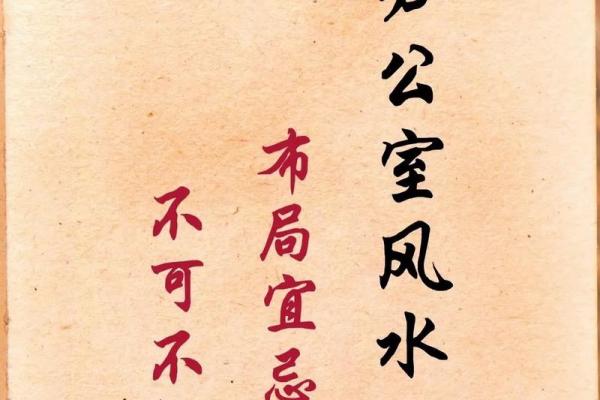 办公室风水
布局宜忌
不可不